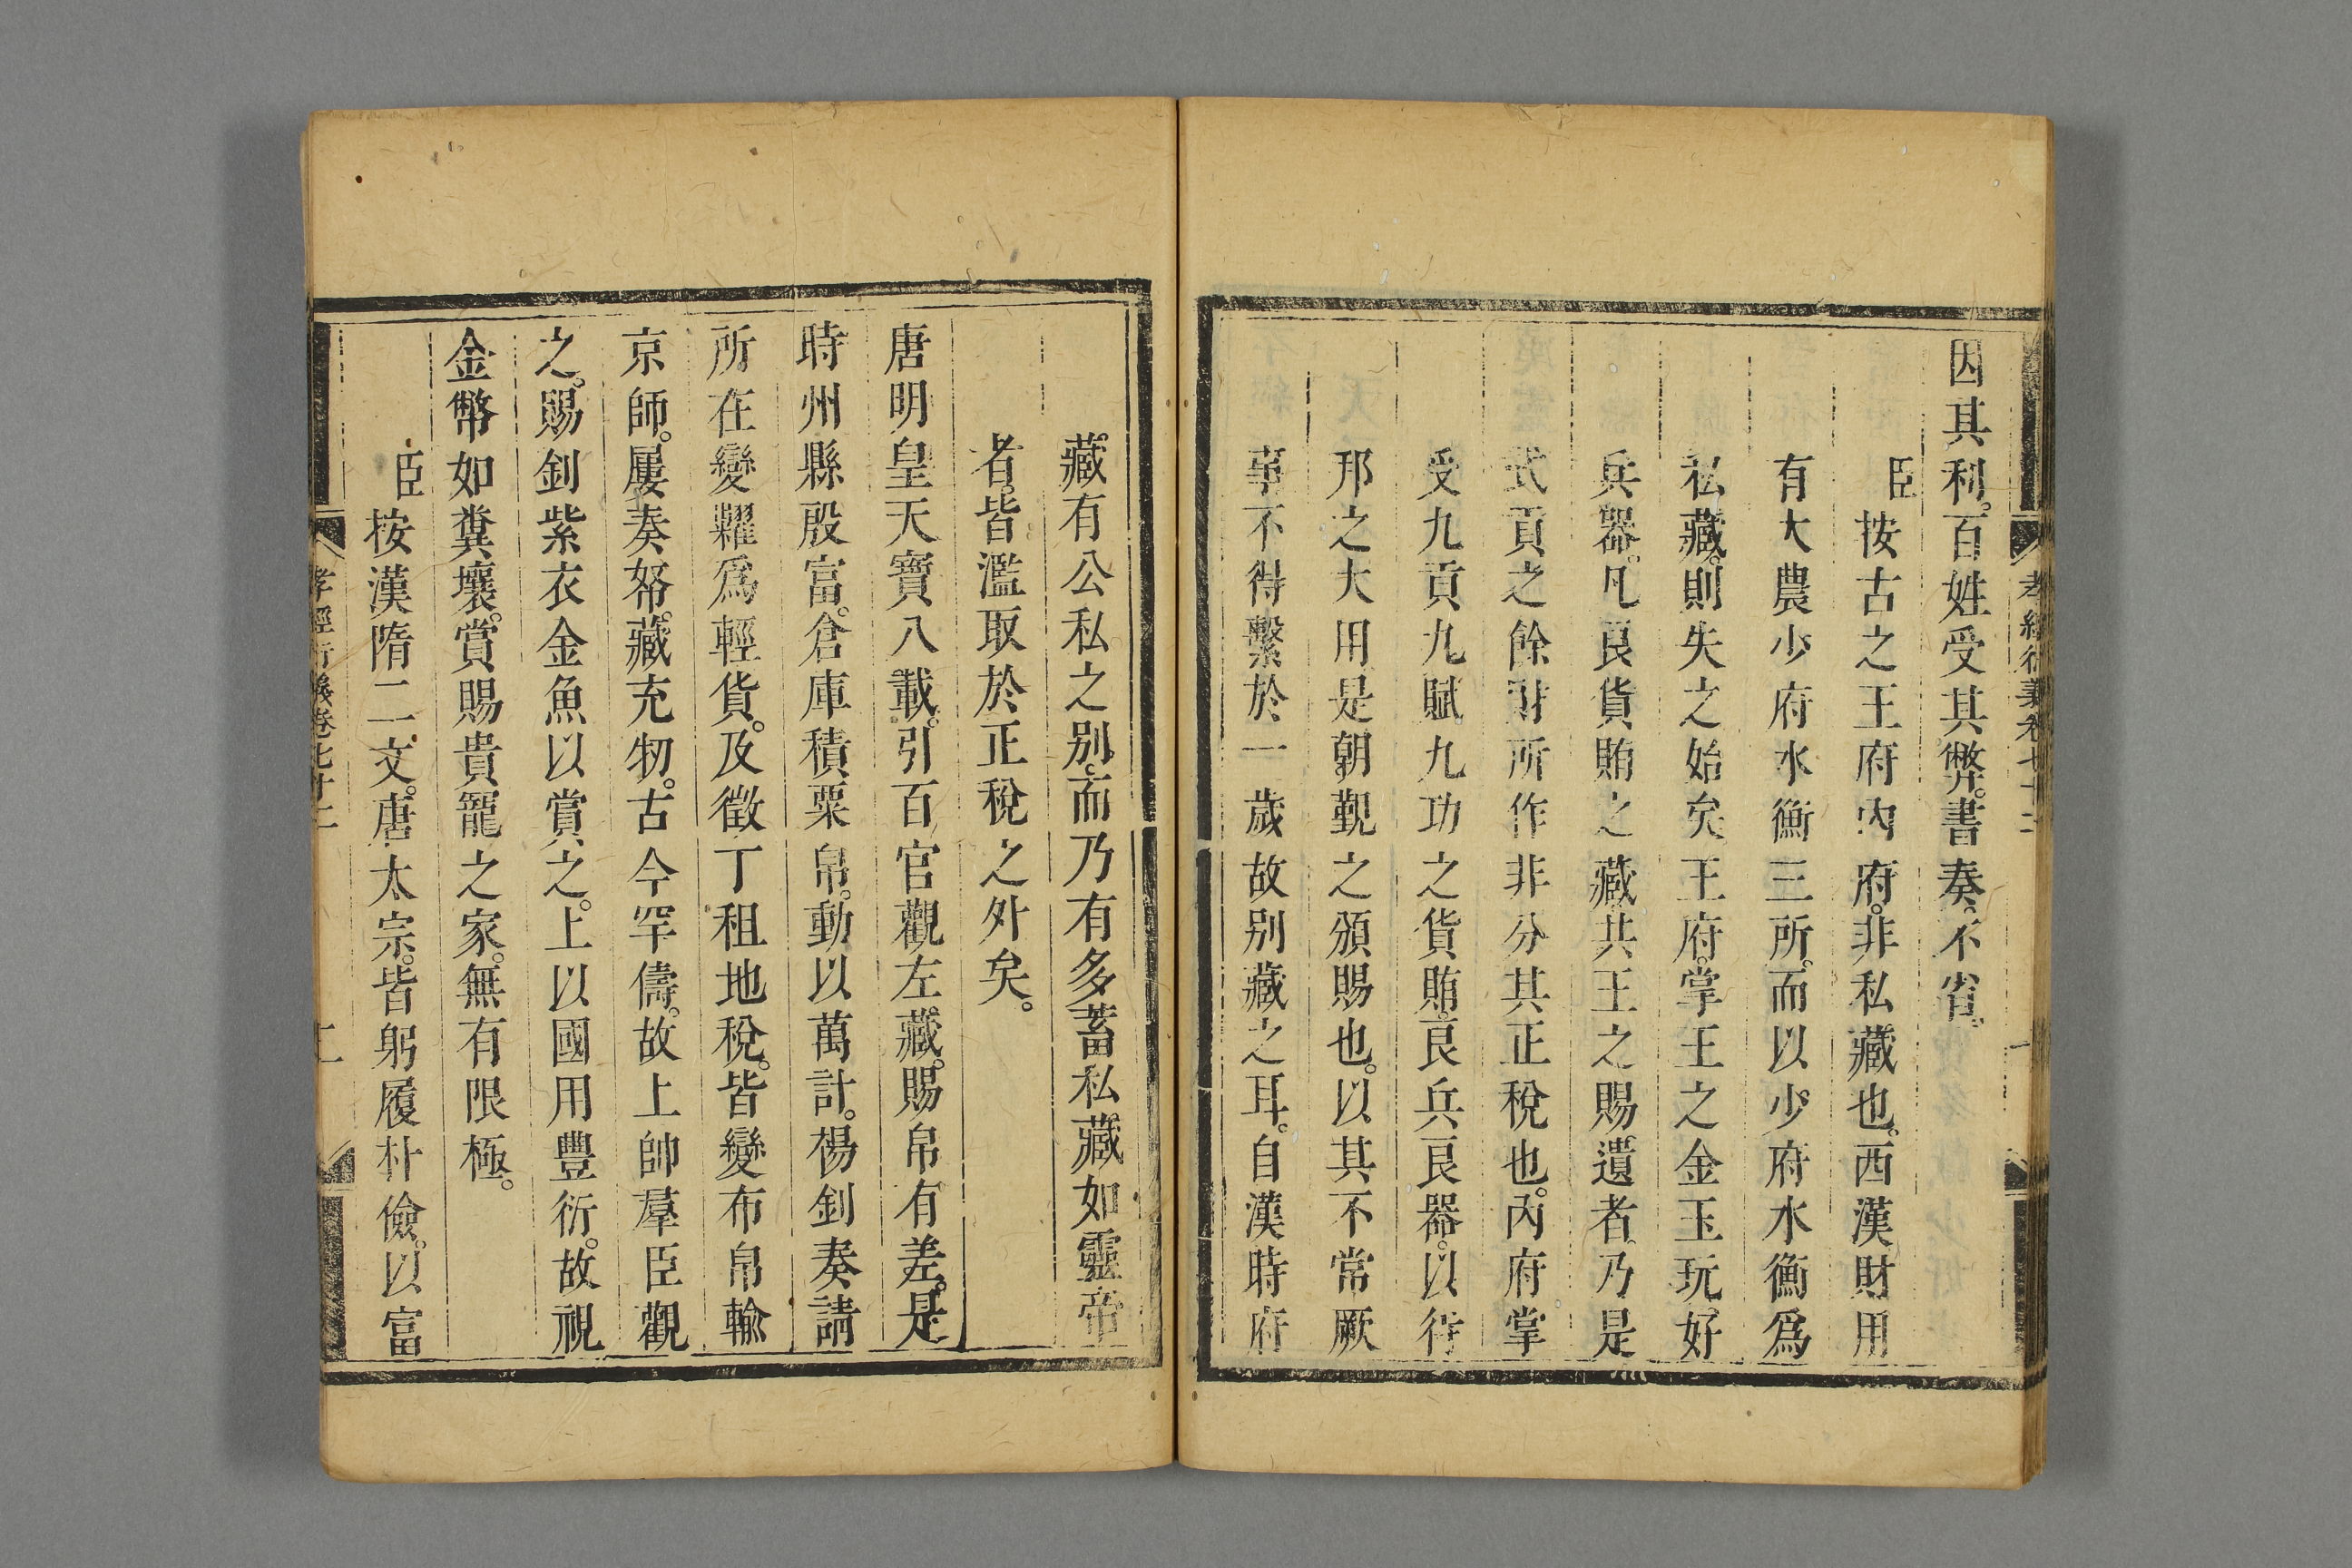 孝經衍義卷七十二
因其利。百姓受其弊。書奏。不省。
臣按古之王府內府。非私藏也。西漢財用
有大農少府水衡三所。而以少府水衡爲
私藏。則失之始矣。王府。掌王之金玉玩好
兵器。凡良貨賄之藏。共王之賜遺者。乃是
式貢之餘財所作。非分其正稅也。內府掌
受九貢九賦九功之貨賄。良兵良器。以待
邦之大用。是朝覲之頒賜也。以其不常厥
事。不得繫於一歲。故別藏之耳。自漢時府
藏有公私之別。而乃有多蓄私藏如靈帝
者。皆濫取於正稅之外矣。
唐明皇天寶八載。引百官觀左藏。賜帛有差。是
時州縣殷富。倉庫積粟帛。動以萬計。楊釗奏請
所在變糶爲輕貨。及徵丁租地稅。皆變布帛輸
京師。屢奏帑藏充牣。古今罕儔。故上帥羣臣觀
之。賜釗紫衣金魚以賞之。上以國用豐衍。故視
金幣如糞壤。賞賜貴寵之家。無有限極。
臣按漢隋二文。唐太宗。皆躬履朴儉。以富
孝經衍義卷七十二